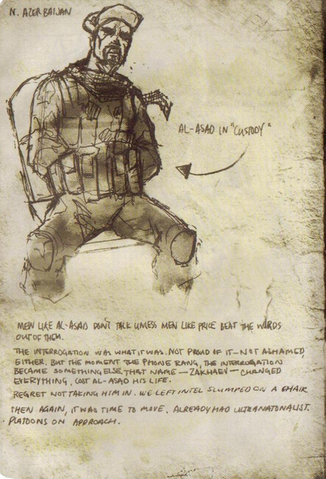 N. AZERBAIJAN
AL-ASAD IN "CUSTODY"
MEN LIKE AL-ASAD DON'T TALK UNLESS MEN LIKE PRICE BEAT THE WORDS
OUT OF THEM.
THE INTERROGATION WAS WHAT IT WAS. NOT PROUD OF IT—NOT ASHAMED,
EITHER. BUT THE MOMENT THE PHONE RANG, THE INTERROGATION
BECAME SOMETHING ELSE. THAT NAME — ZAKHAEV — CHANGED
EVERYTHING, COST AL-ASAD HIS LIFE.
REGRET NOT TAKING HIM IN. WE LEFT INTEL SLUMPED ON A CHAIR
THEN AGAIN, IT WAS TIME TO MOVE. ALREADY HAD ULTRANATONALIST
PLATOONS ON APPROACH.